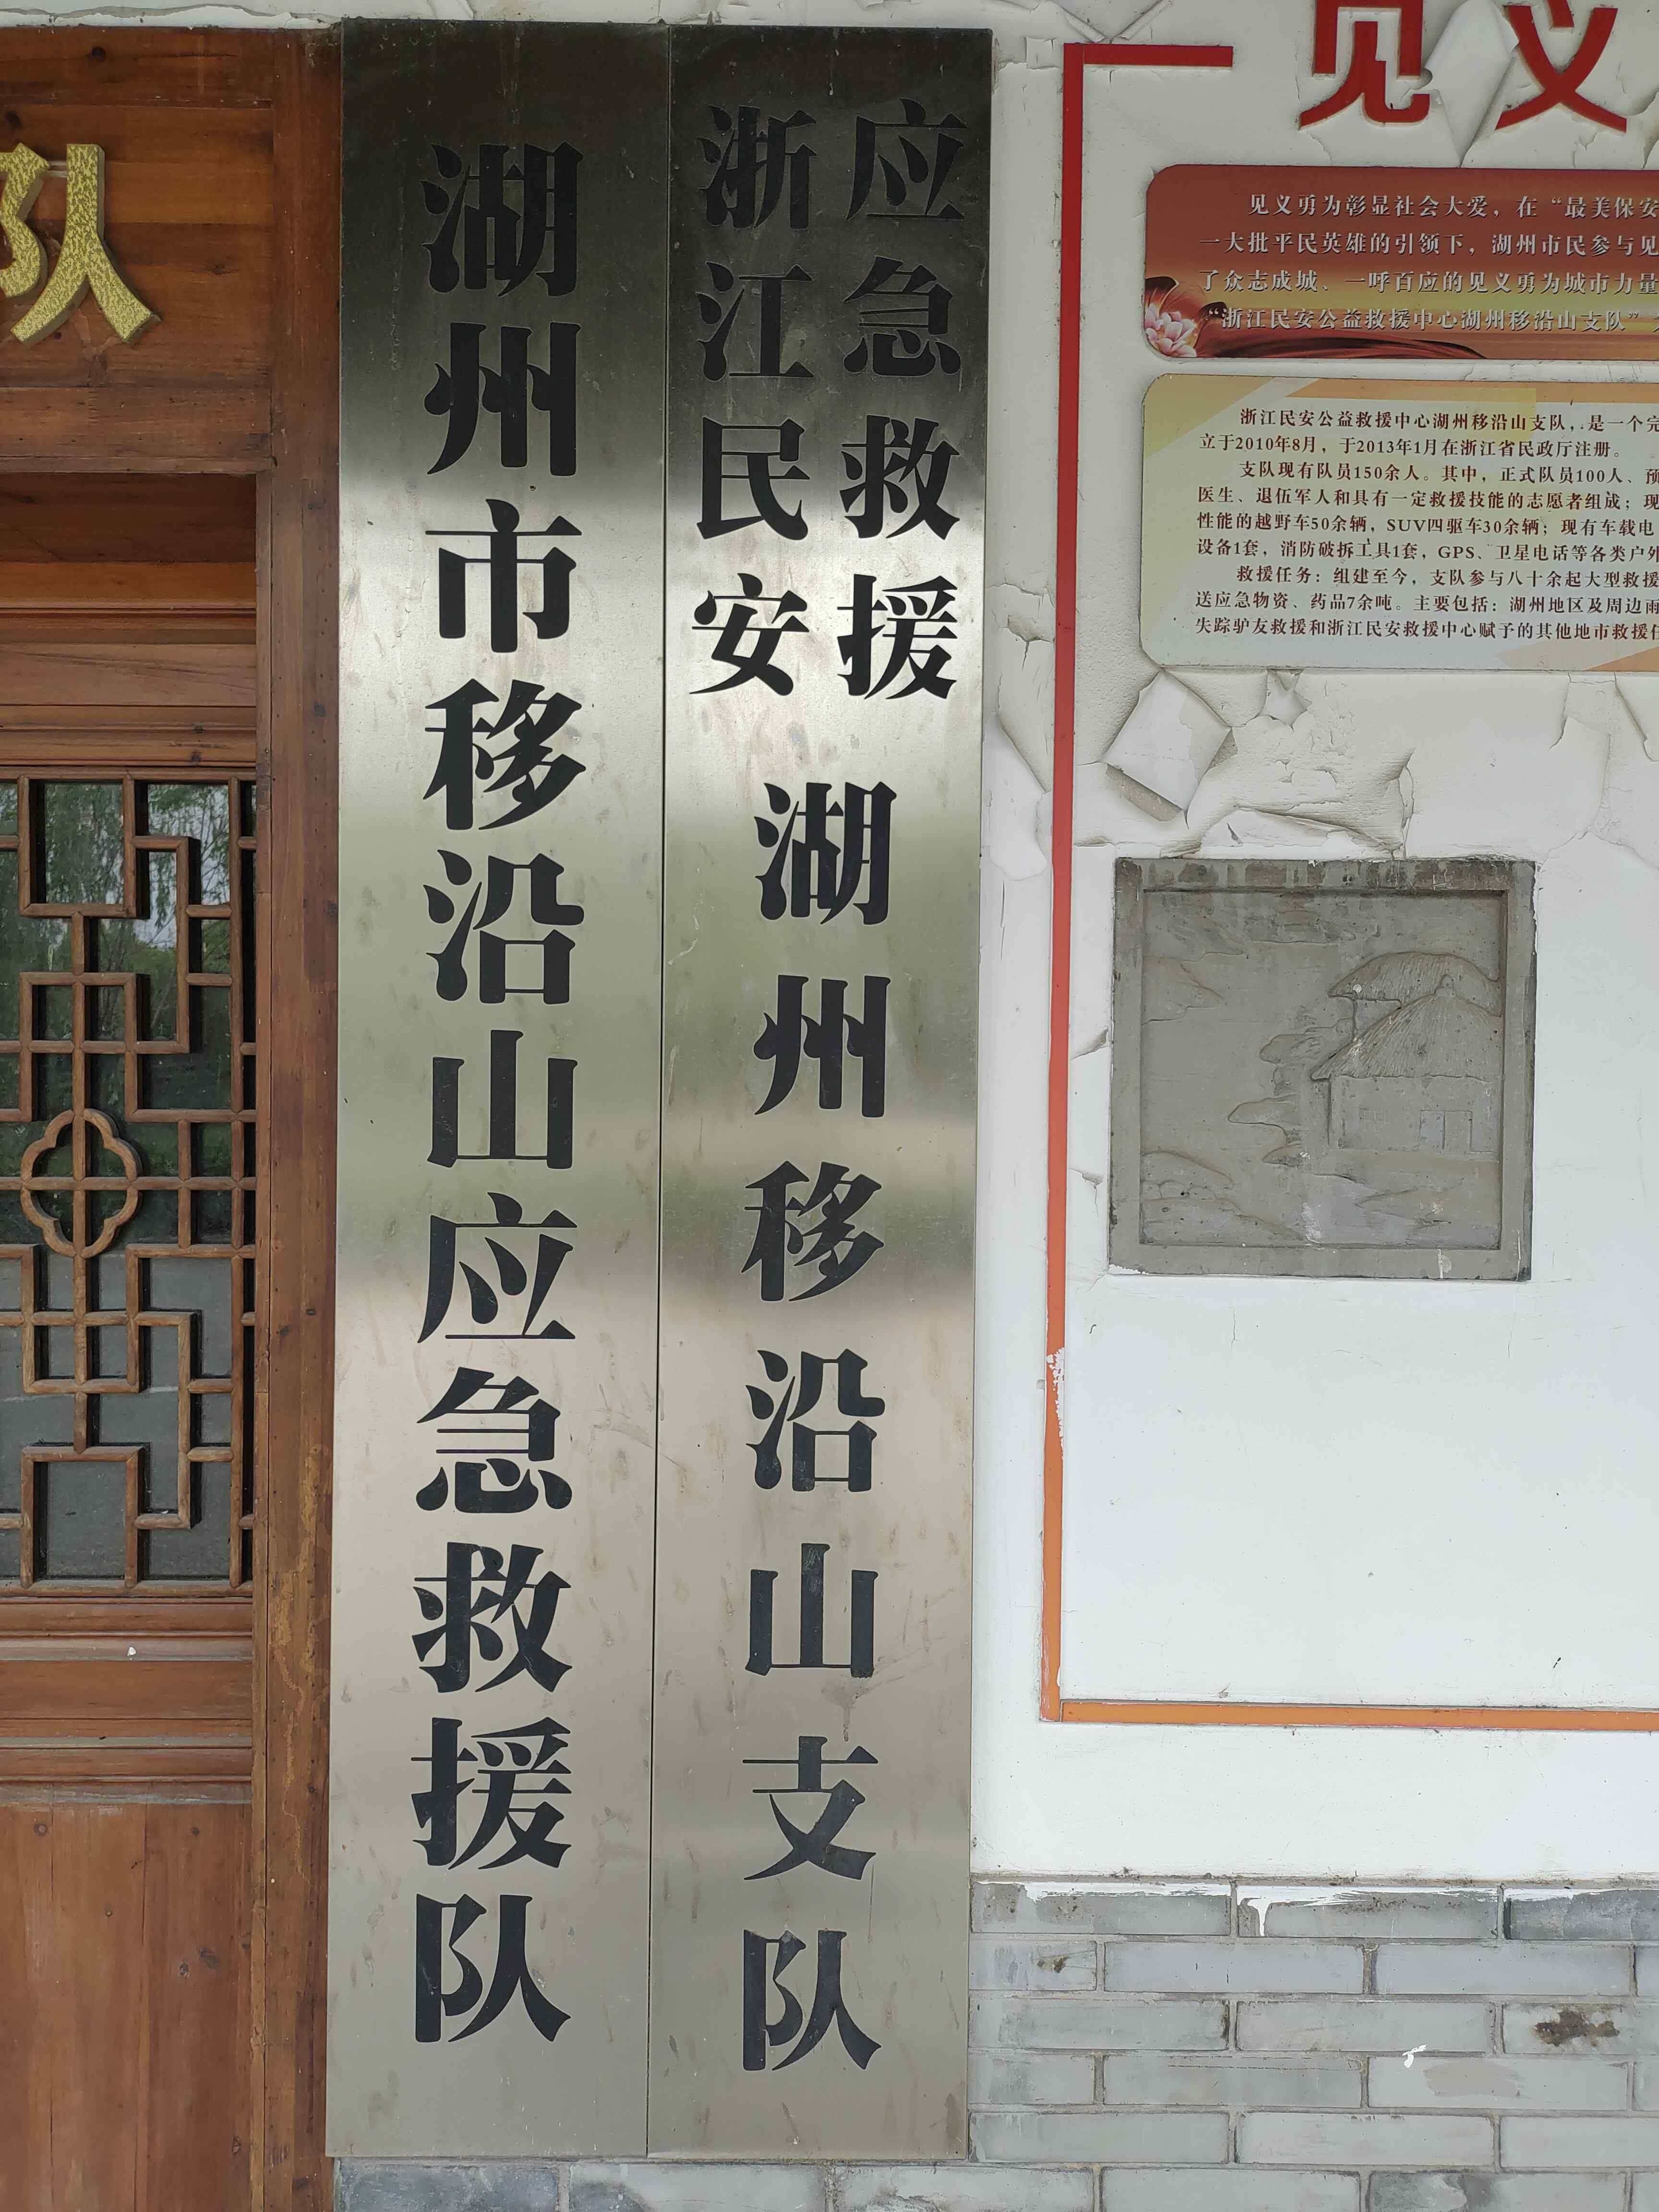 队
湖州市移沿山应急救援队
浙江民安
应急救援
湖州移沿山支队
见义
见义勇为彰显社会大爱，在“最美保安
一大批平民英雄的引领下，湖州市民参与见
了众志成城、一呼百应的见义勇为城市力量
“浙江民安公益救援中心湖州移沿山支队”
浙江民安公益救援中心湖州移沿山支队，是一个完
立于2010年8月，于2013年1月在浙江省民政厅注册。
支队现有队员150余人。其中，正式队员100人、预
医生、退伍军人和具有一定救援技能的志愿者组成；现
性能的越野车50余辆，SUV四驱车30余辆；现有车载电
设备1套，消防破拆工具1套，GPS、卫星电话等各类户外
救援任务：组建至今，支队参与八十余起大型救援
送应急物资、药品7余吨。主要包括：湖州地区及周边雨
失踪驴友救援和浙江民安救援中心赋予的其他地市救援任